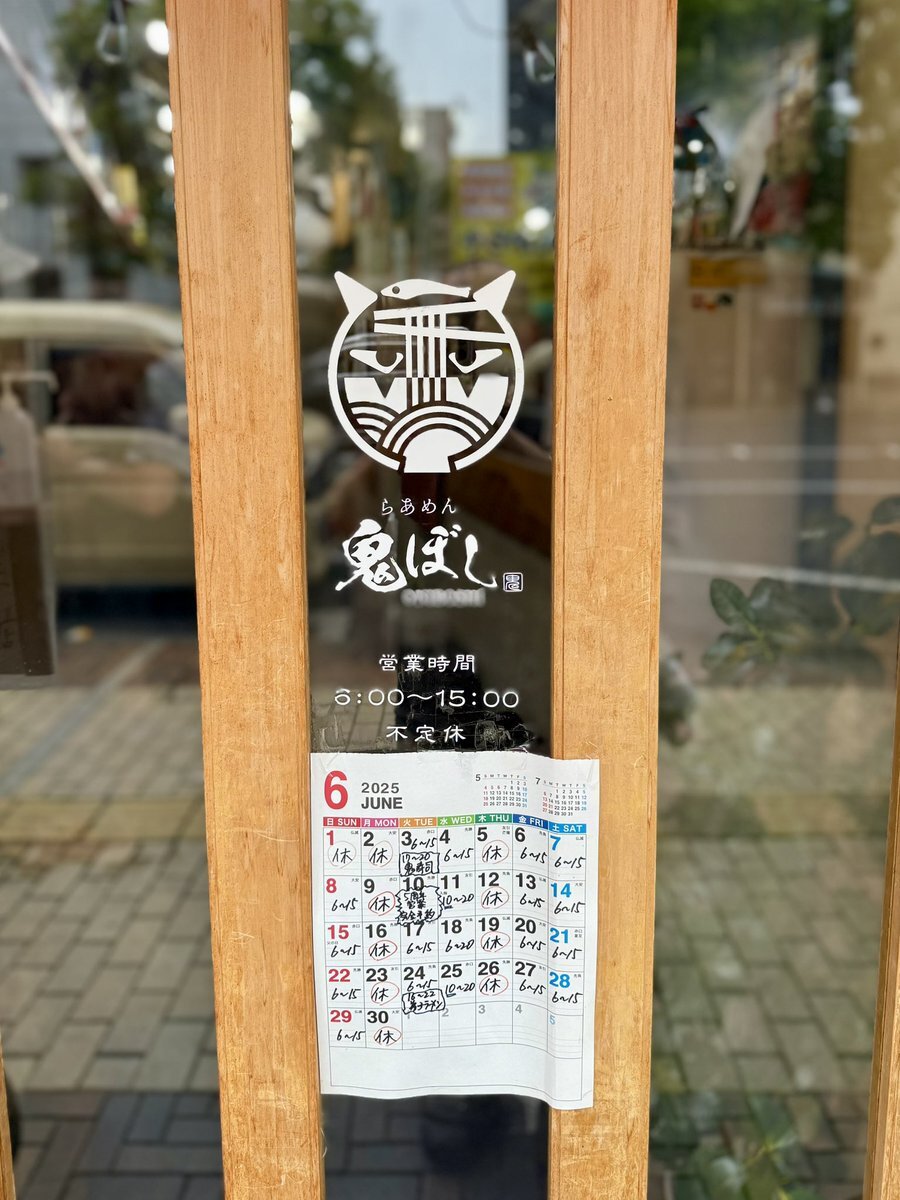 らあめん
鬼ぼし
営業時間
6:00〜15:00
不定休
6 2025 JUNE
5 S M T W T F S
7 S M T W T F S
日 SUN 月 MON 火 TUE 水 WED 木 THU 金 FRI 土 SAT
1 2 3 4 5 6 7
休 休 6~15 6~15 休 6~15 6~15
17~20
鬼寿司
8 9 10 11 12 13 14
6~15 休 5周年 10~20 休 6~15 6~15
営業
完全予約
15 16 17 18 19 20 21
6~15 休 6~15 6~20 休 6~15 6~15
22 23 24 25 26 27 28
6~15 休 6~15 10~20 休 6~15 6~15
16~22
29 30 1 2 3 4 5
6~15 休